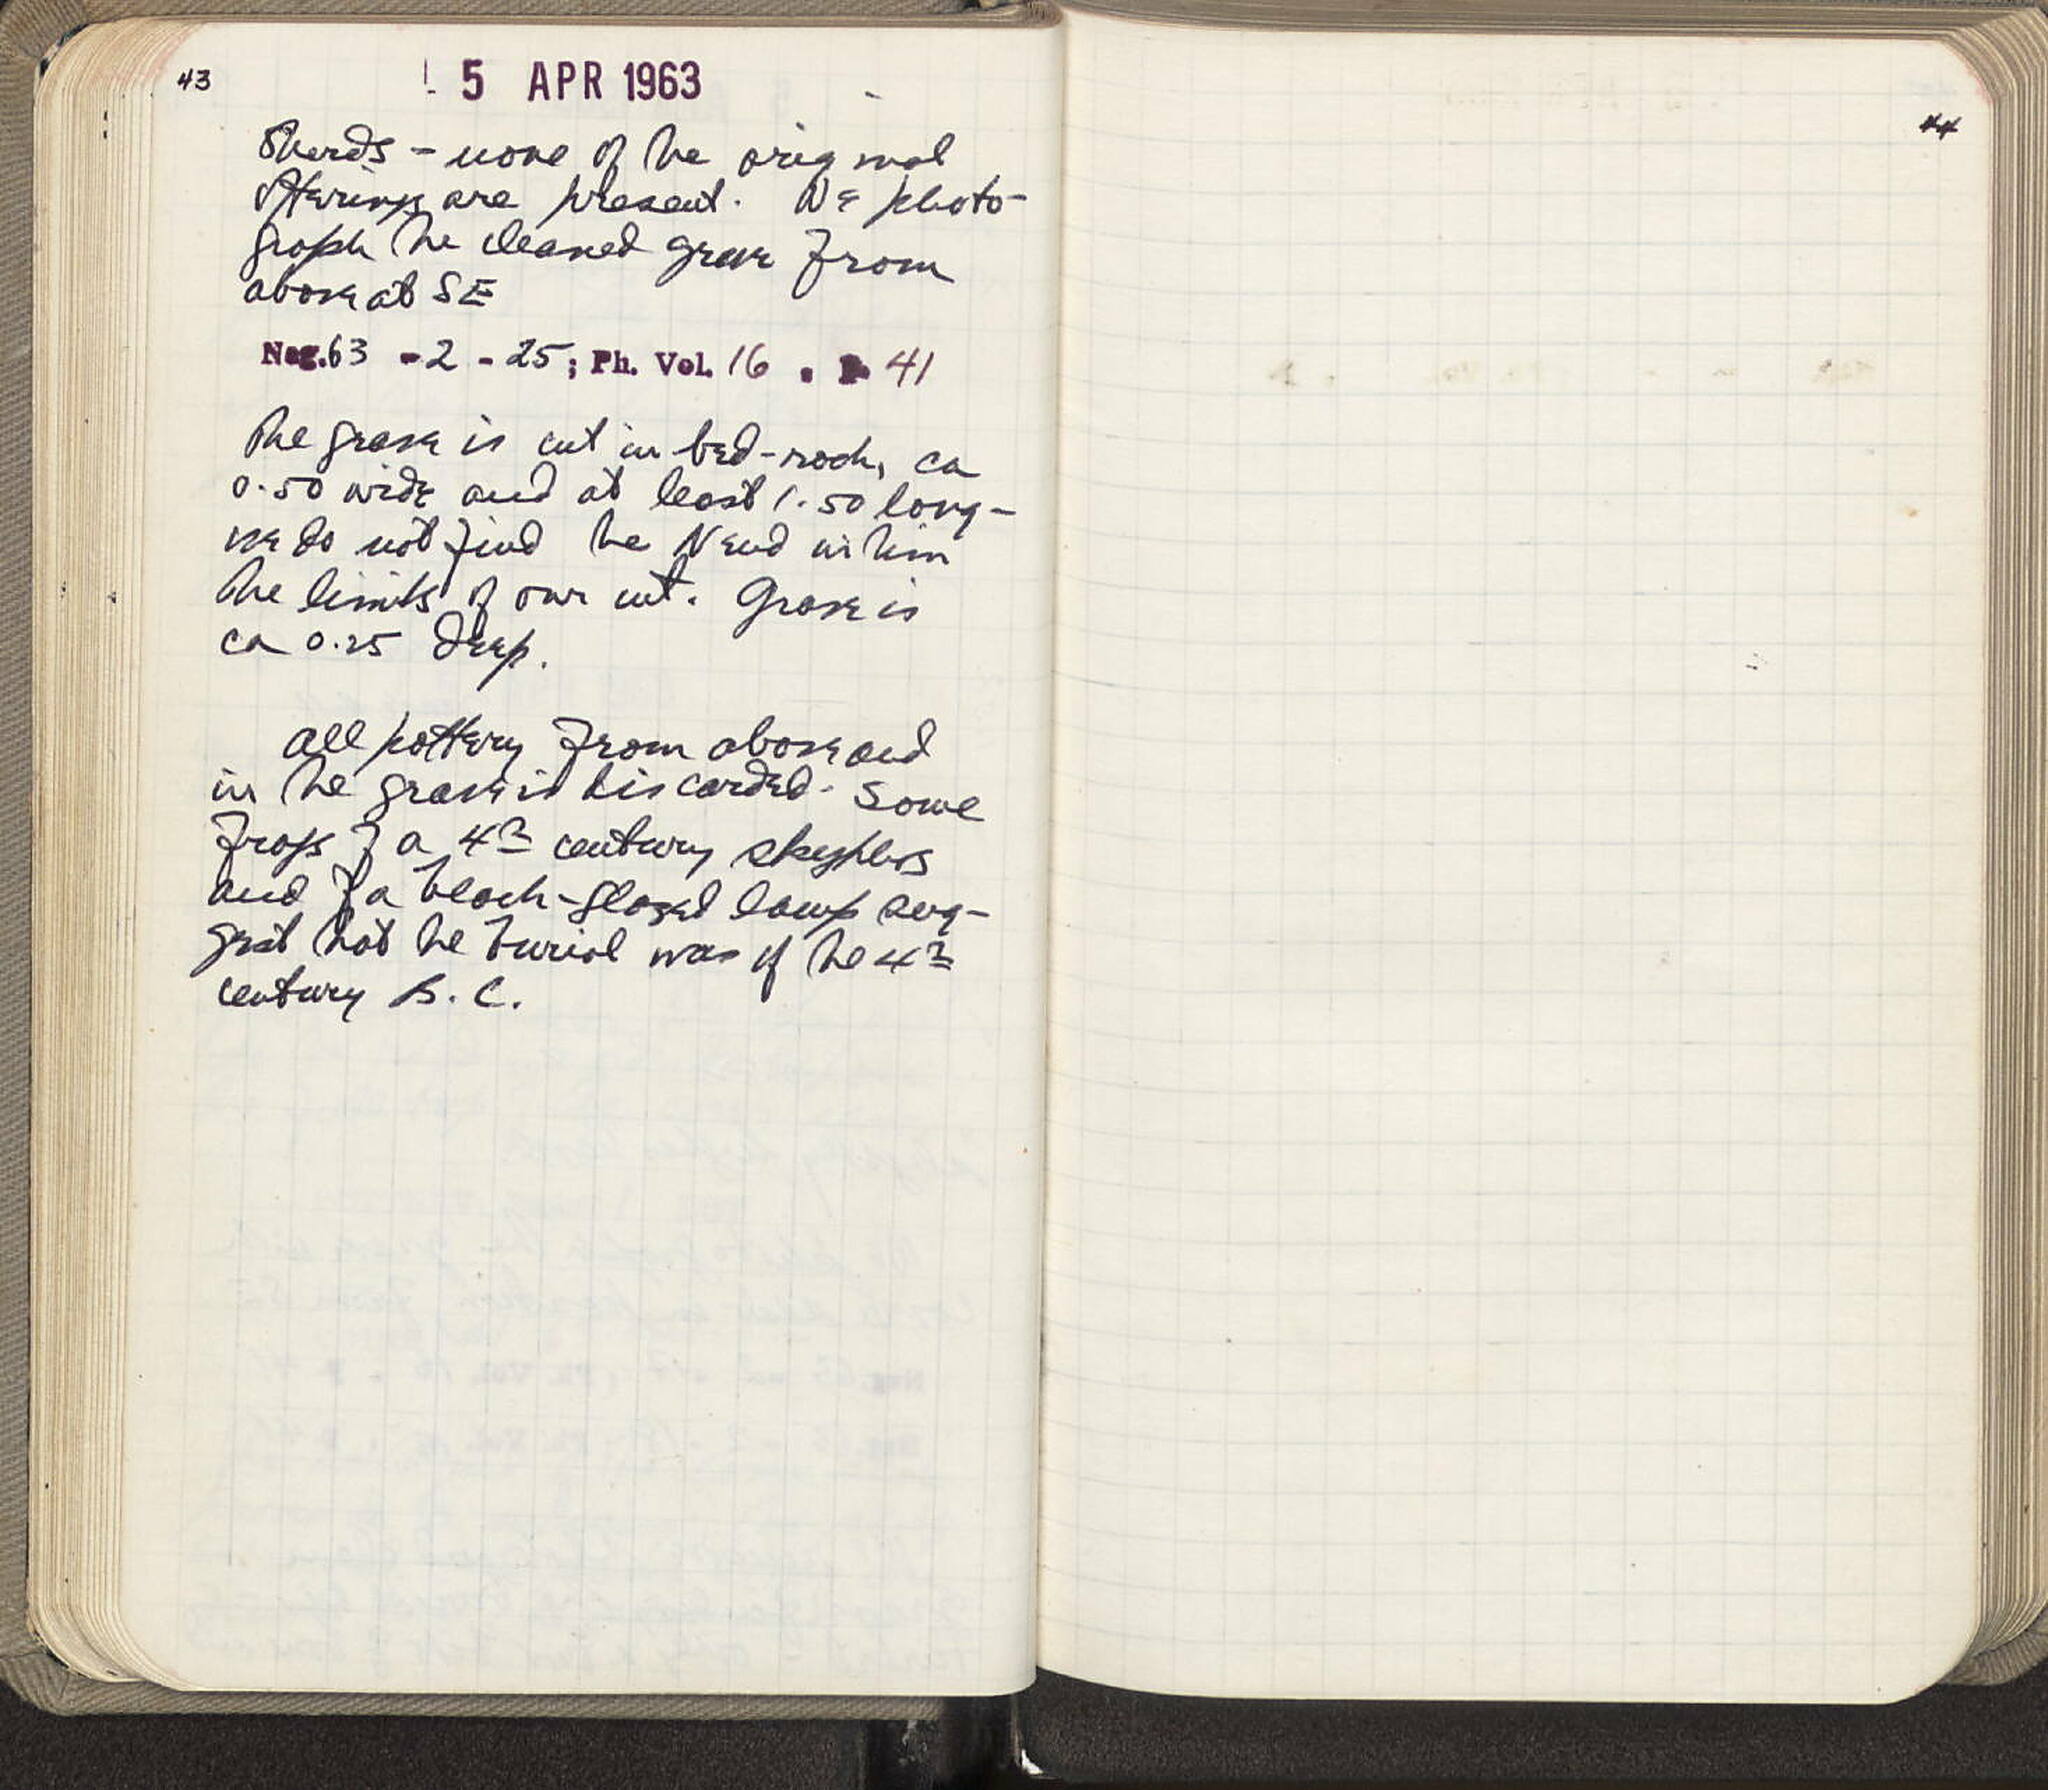 43
5 APR 1963
Sherds - none of the original
offerings are present. We photo-
graph the cleaned grave from
above at SE
Neg. 63 - 2 - 25 ; Ph. Vol. 16 . P 41
The grave is cut in bed-rock, ca
0.50 wide and at least 1.50 long-
we do not find the N end within
the limits of our cut. Grave is
ca 0.25 deep.
All pottery from above and
in the grave is discarded. Some
frags of a 4th century skyphos
and of a black-glazed lamp sug-
gest that the burial was of the 4th
century B.C.
44